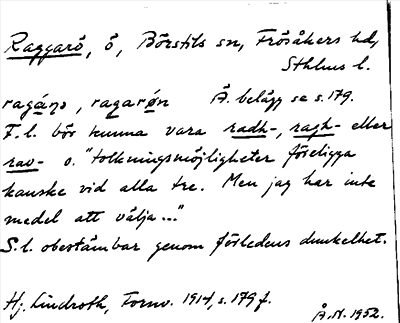 Raggarö, ö, Börstils sn, Frösåkers hd,
Sthlms l.
ragáṇọ, ragarǿn Ä. belägg se s. 179.
F.l. bör kunna vara radh-, ragh- eller
rav- o. "tolkningsmöjligheter föreligga
kanske vid alla tre. Men jag har inte
medel att välja..."
S.l. obestämbar genom förledens dunkelhet.
Hj. Lindroth, Fornv. 1914, s. 179 f.
Å.N. 1952.